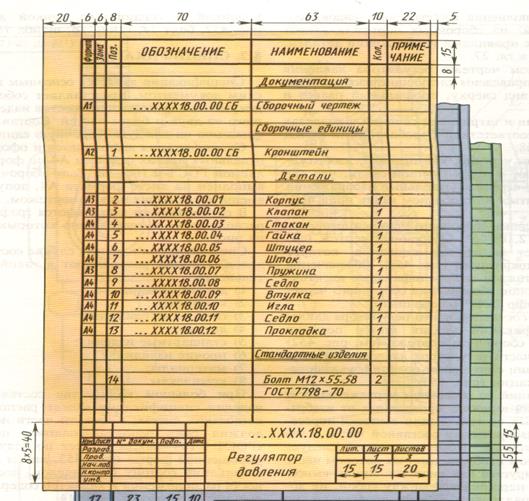 20 6 6 8 70 63 10 22 5
Формат Зона Поз. ОБОЗНАЧЕНИЕ НАИМЕНОВАНИЕ Кол. ПРИМЕ-
ЧАНИЕ
15
8
Документация
А1 ...XXXX18.00.00 СБ Сборочный чертеж
Сборочные единицы
А2 1 ...XXXX18.00.00 СБ Кронштейн
Детали
А3 2 ...XXXX18.00.01 Корпус 1
А3 3 ...XXXX18.00.02 Клапан 1
А4 4 ...XXXX18.00.03 Стакан 1
А4 5 ...XXXX18.00.04 Гайка 1
А4 6 ...XXXX18.00.05 Штуцер 1
А4 7 ...XXXX18.00.06 Шток 1
А3 8 ...XXXX18.00.07 Пружина 1
А4 9 ...XXXX18.00.08 Седло 1
А4 10 ...XXXX18.00.09 Втулка 1
А4 11 ...XXXX18.00.10 Игла 1
А4 12 ...XXXX18.00.11 Седло 1
А4 13 ...XXXX18.00.12 Прокладка 1
Стандартные изделия
14 Болт М12×55.58 2
ГОСТ 7798–70
8×5=40
...XXXX.18.00.00
15
5 5
Изм Лист № докум. Подп. Дата
Разраб.
Пров.
Нач.лаб
Н.контр
Утв.
Регулятор
давления
Лит. Лист Листов
3
15 15 20
17 23 15 10